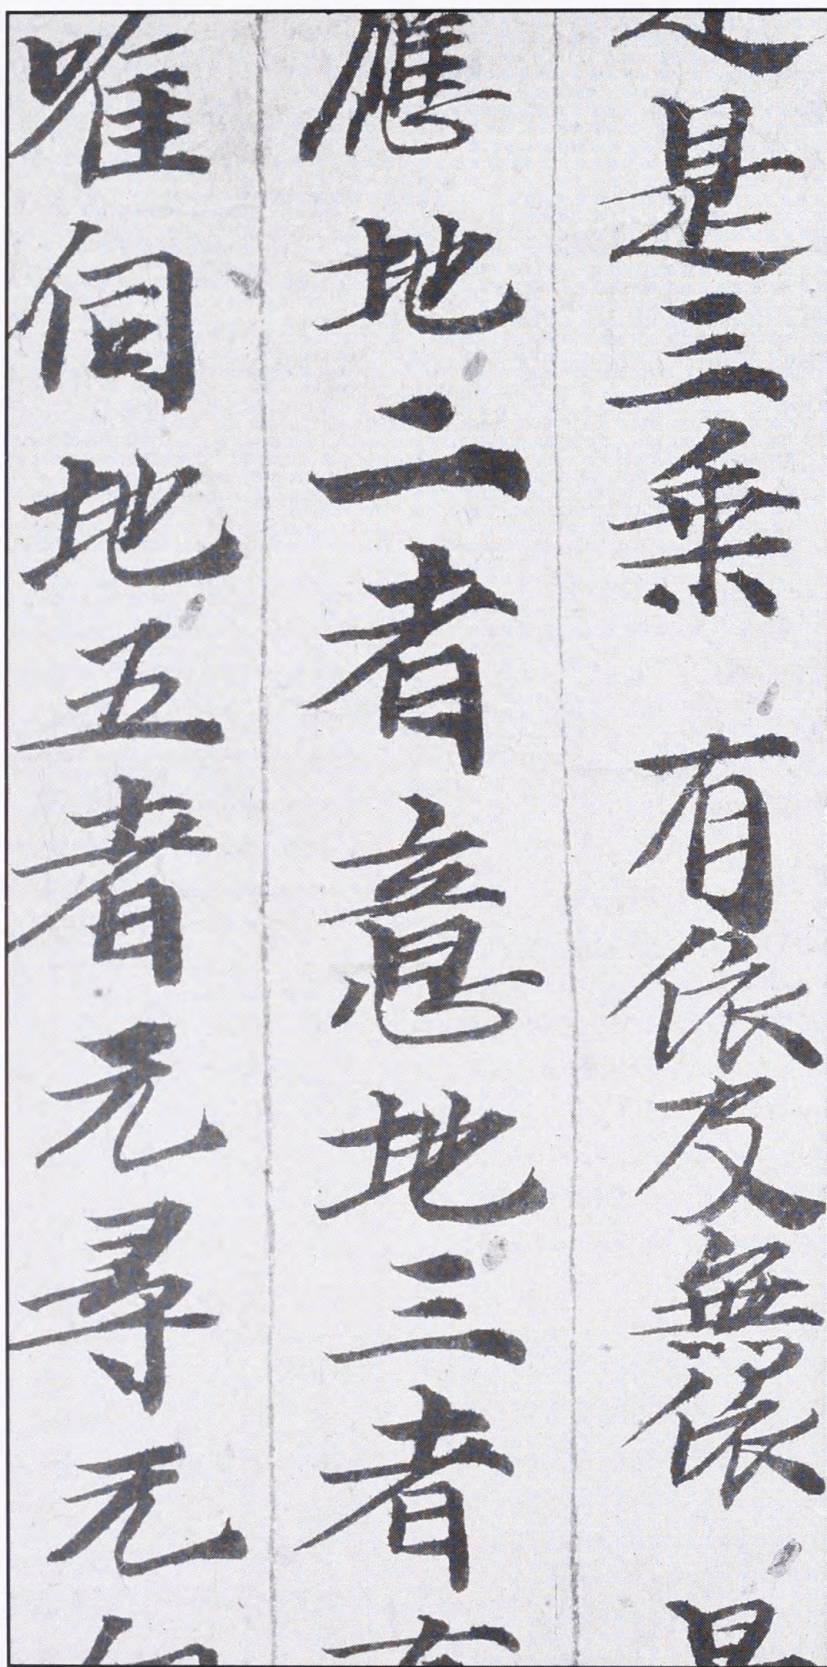 是三乘 有依及無依
應地二者意地三者
唯伺地五者无尋无